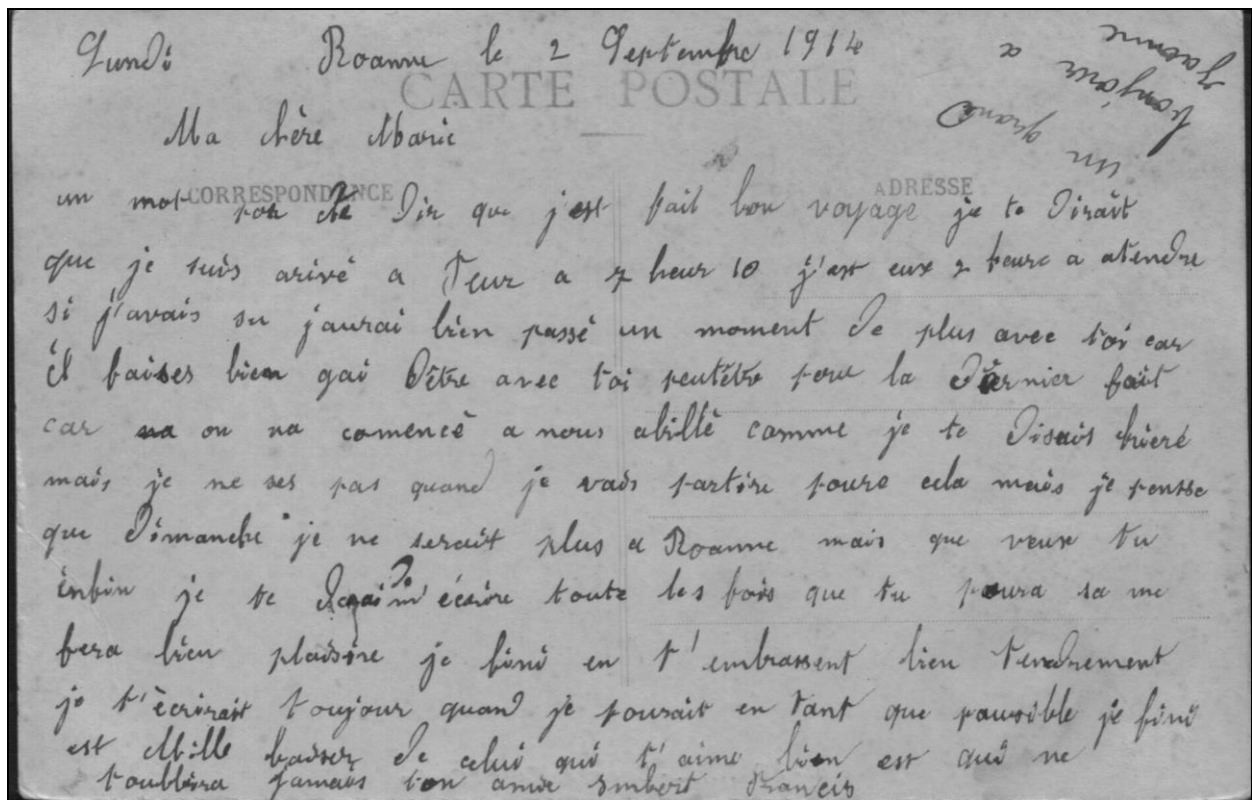 Lundi Roanne le 2 Septembre 1914
CARTE POSTALE
un grand
bonjour a
Ma chère Marie
CORRESPONDANCE
ADRESSE
un mot pour te dir que j'est fait bon voyage je te dirait
que je suis arivé a a 7 heur 10 j'est eux 2 heure a atendre
si j'avais su jaurai bien passé un moment de plus avec toi car
il faises bien gai d'être avec toi peutêtre pour la dernier fait
car on na comencé a nous abillé comme je te disais hieré
mais je ne ses pas quand je vais partire poure cela mais je pensse
que dimanche je ne serait plus a Roanne mais que veux tu
enfin je te de m'écrire toute les fois que tu poura sa me
fera bien plaisire je fini en t'embrassent bien tendrement
je t'écrirait toujour quand je pourait en tant que poussible je fini
est Mille baiser de celui qui t'aime bien est qui ne
toublira jamais ton amie Imbert Francis